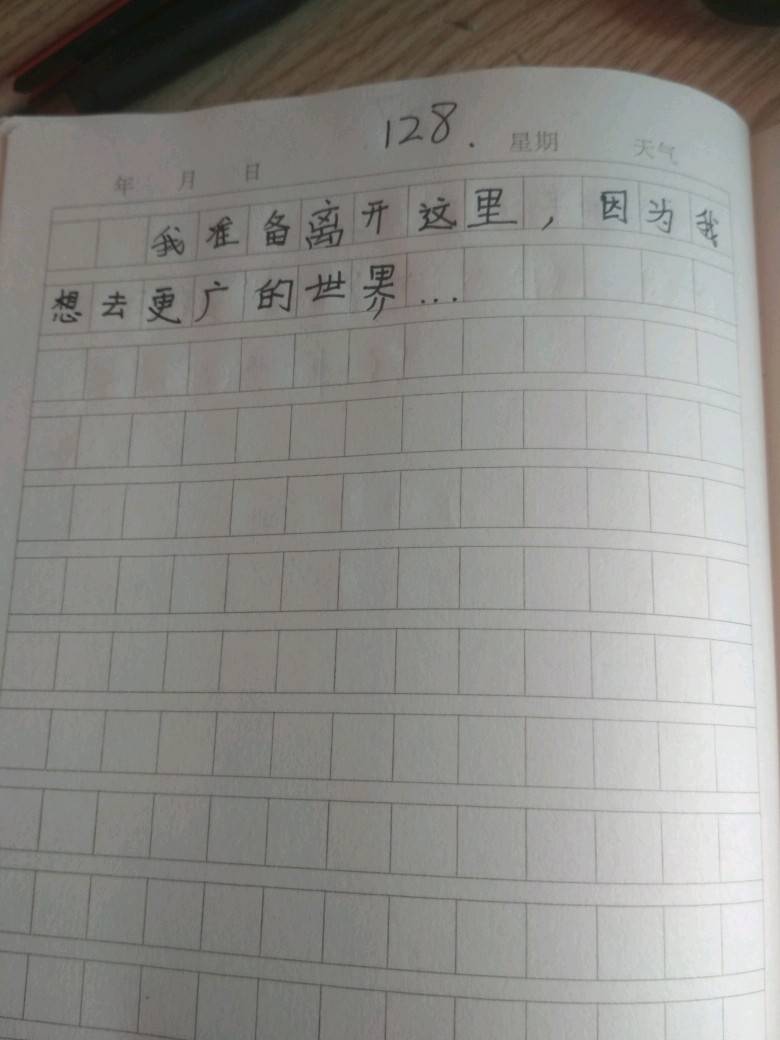 128.
年 月 日 星期 天气
我准备离开这里，因为我
想去更广的世界...